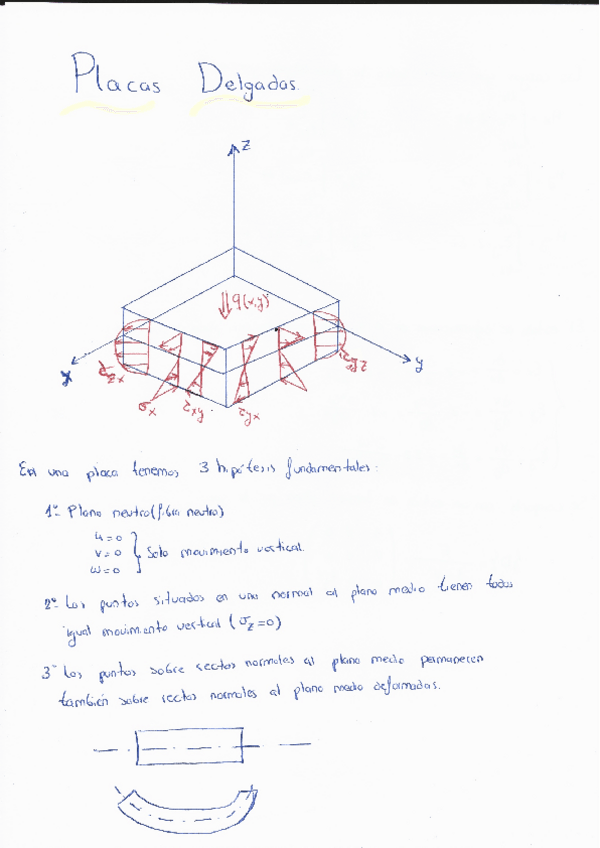 Placas Delgadas.
z
q(x,y)
x
y
τzx
σx
τxy
τyx
τyz
En una placa tenemos 3 hipótesis fundamentales:
1ª- Plano neutro (fibra neutra)
u=0
v=0 } Solo movimiento vertical.
ω=0
2ª- Los puntos situados en una normal al plano medio tienen todos
igual movimiento vertical (σz=0)
3ª Los puntos sobre rectas normales al plano medio permanecen
también sobre rectas normales al plano medio deformadas.